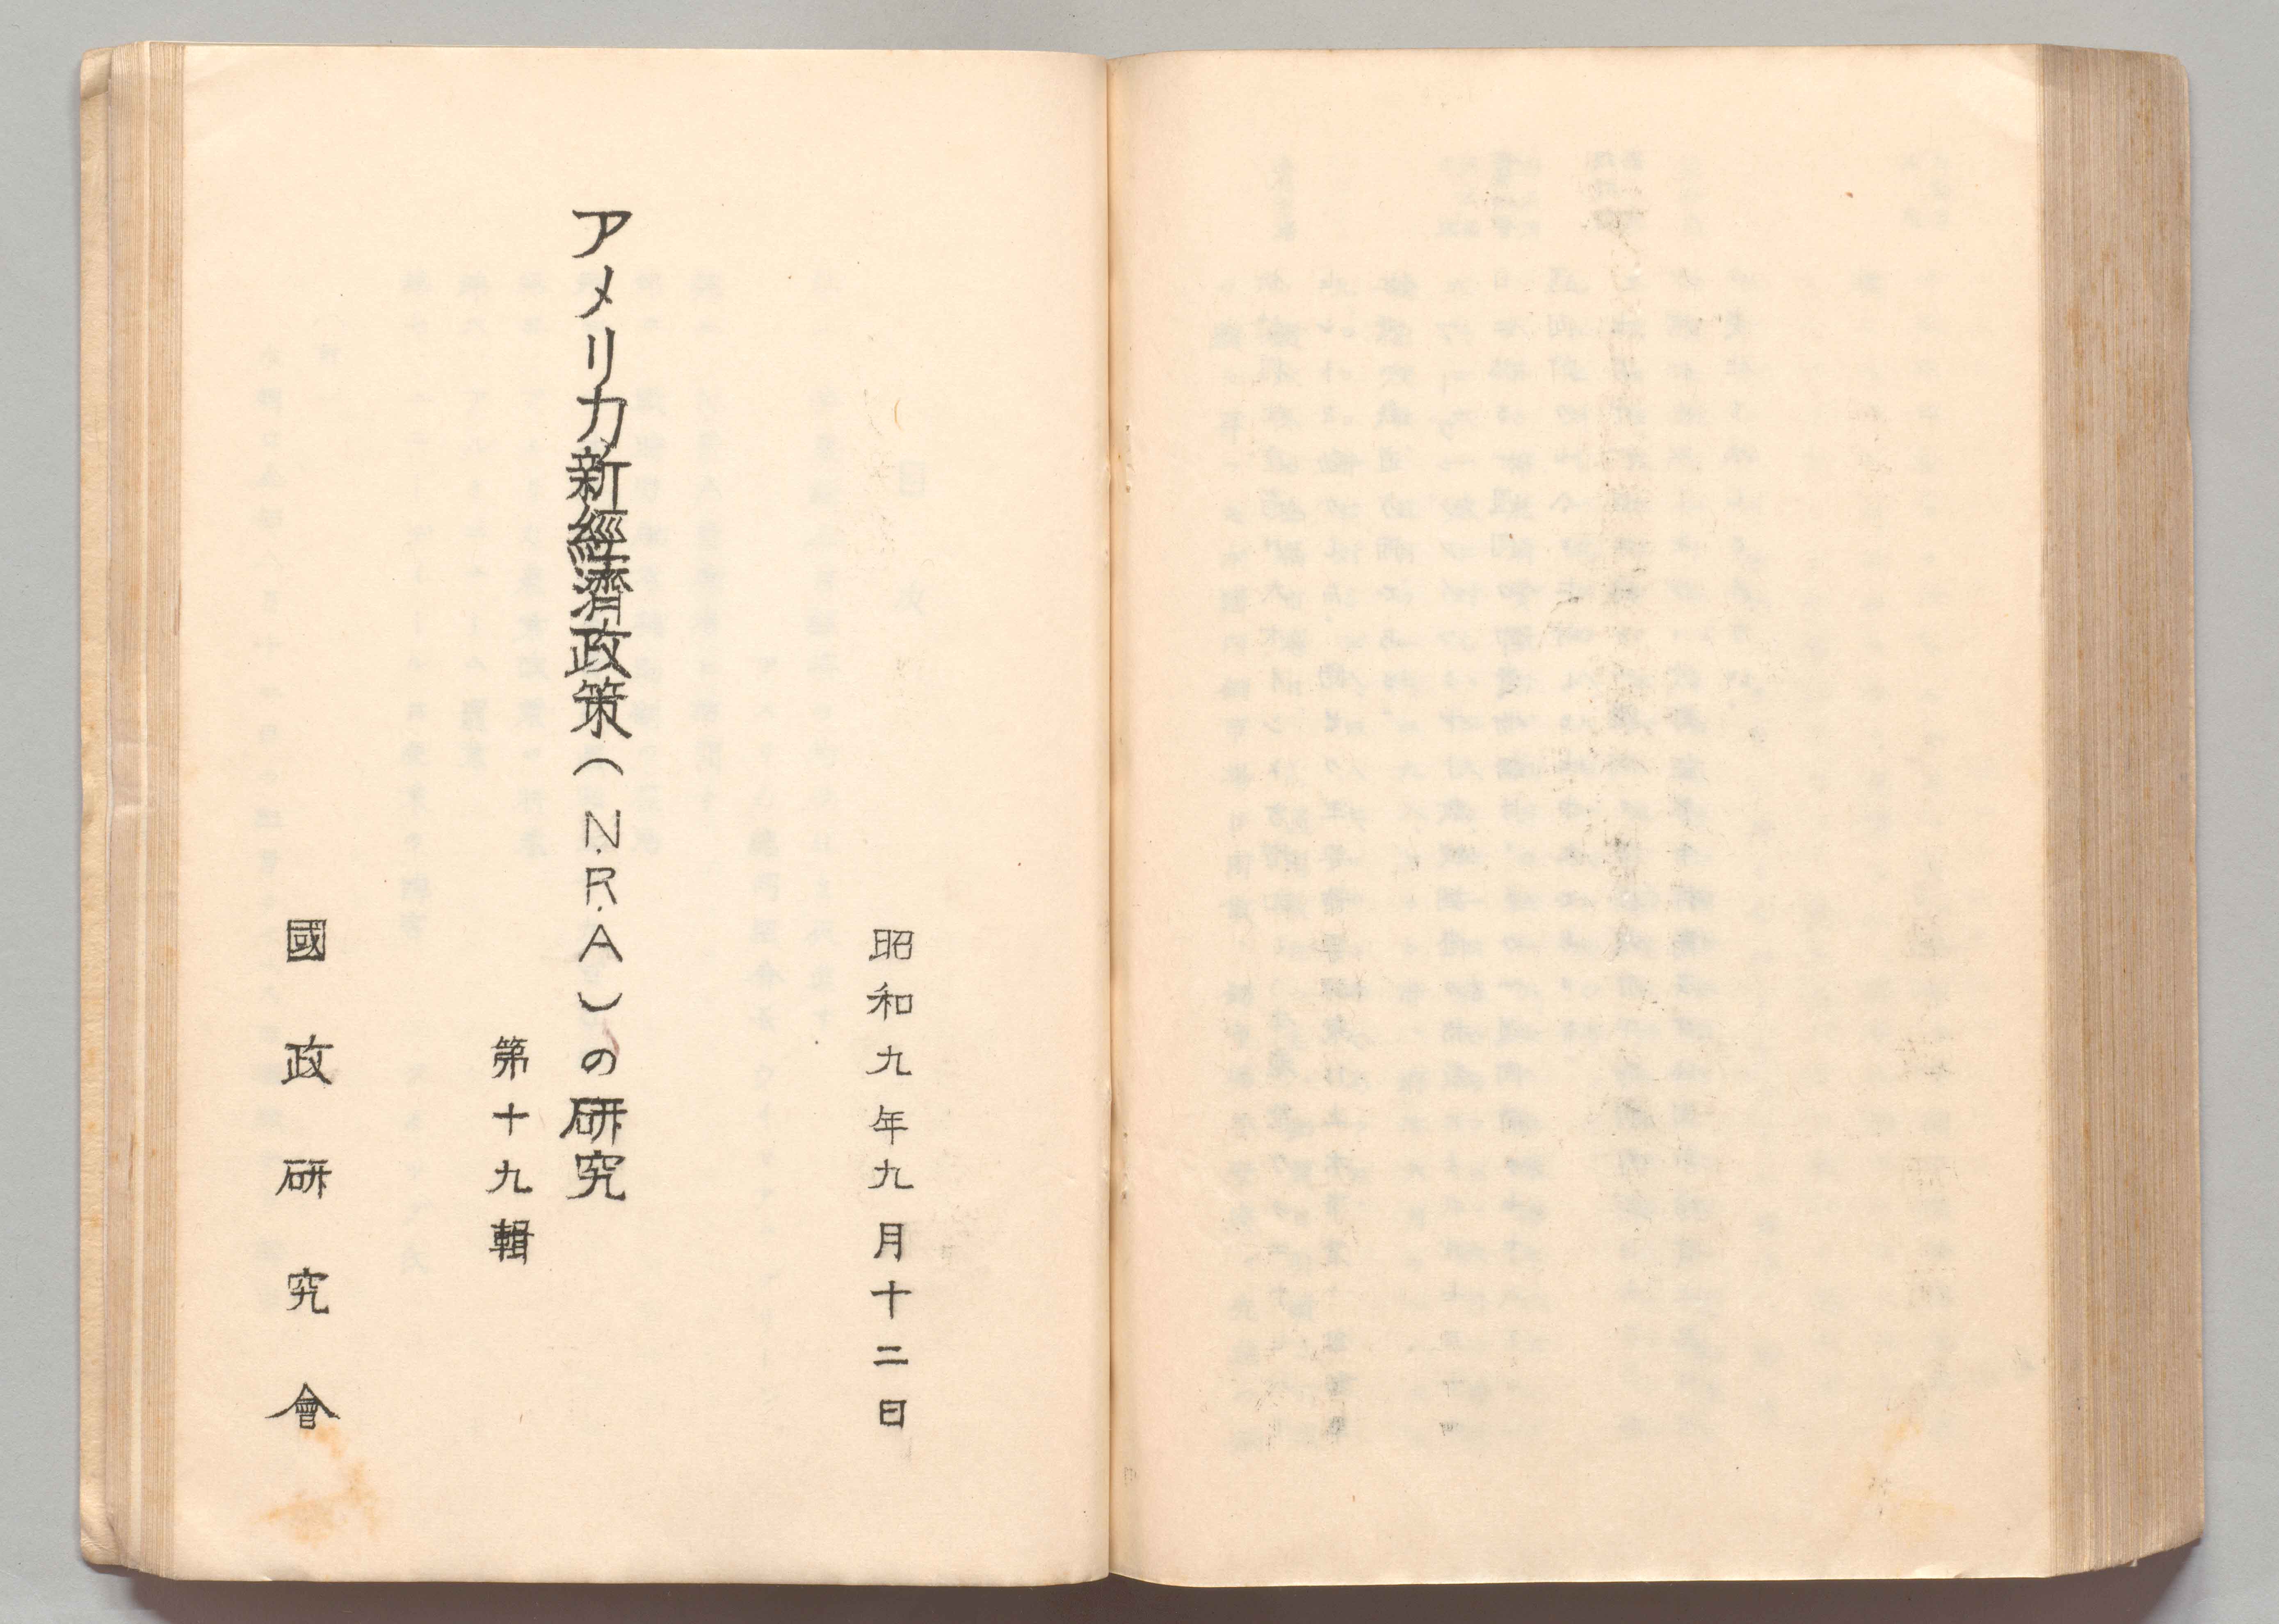 昭和九年九月十二日
アメリカ新經濟政策(N.R.A)の研究
第十九輯
國政研究會